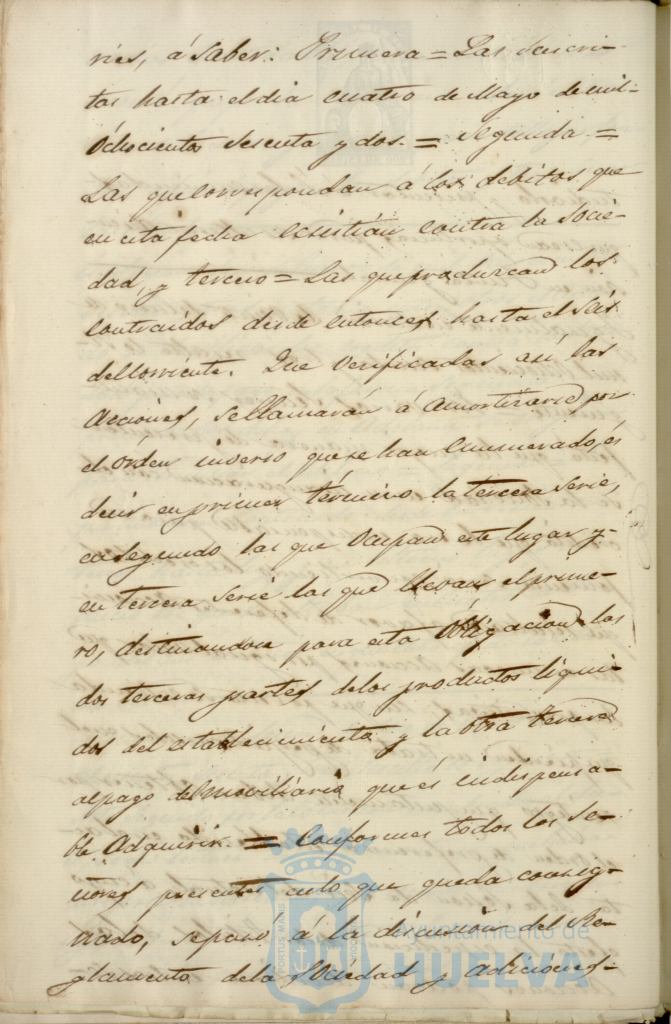 ries, á saber: Primera = Las suscri-
tas hasta el dia cuatro de Mayo de mil-
Ochocientos Sesenta y dos. = Segunda =
Las que correspondan á los debitos que
en esta fecha Ecsistian contra la Socie-
dad, y tercero = Las que produzcan los
contraidos desde entonces hasta el seis
del corriente. Que Verificadas así las
Acciones, se llamarán á Amortizarse por
el órden inverso que se han Enumerado, és
decir en primer término la tercera Serie,
en Segundo las que Ocupan este lugar y
en tercera Serie las que llevan el prime-
ro, destinandose para esta Obligacion las
dos terceras partes de los productos liqui-
dos del establecimiento y la otra tercera
al pago del moviliario que és indispensa-
ble Adquirir. = Conformes todos los Se-
ñores presentes en lo que queda consig-
nado, se pasó á la discusion del Re-
glamento de la Sociedad y Adiciones-
PORTUS MARIS
Ayuntamiento de
HUELVA